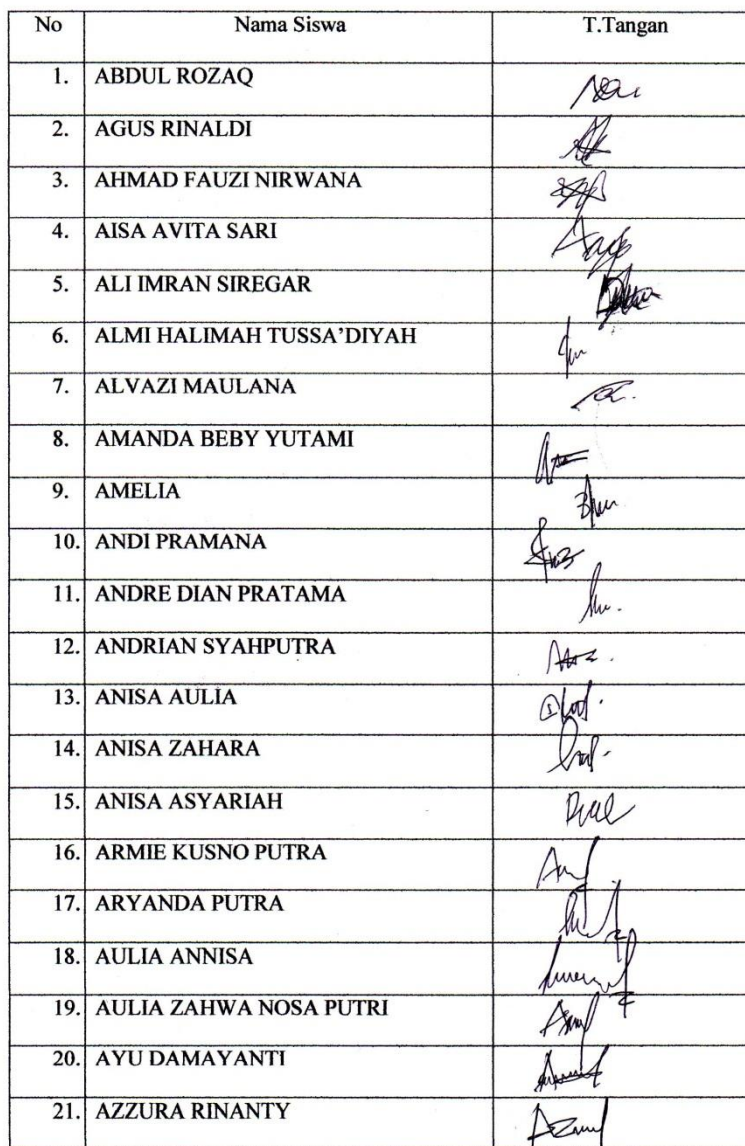 No Nama Siswa T.Tangan
1. ABDUL ROZAQ
2. AGUS RINALDI
3. AHMAD FAUZI NIRWANA
4. AISA AVITA SARI
5. ALI IMRAN SIREGAR
6. ALMI HALIMAH TUSSA’DIYAH
7. ALVAZI MAULANA
8. AMANDA BEBY YUTAMI
9. AMELIA
10. ANDI PRAMANA
11. ANDRE DIAN PRATAMA
12. ANDRIAN SYAHPUTRA
13. ANISA AULIA
14. ANISA ZAHARA
15. ANISA ASYARIAH
16. ARMIE KUSNO PUTRA
17. ARYANDA PUTRA
18. AULIA ANNISA
19. AULIA ZAHWA NOSA PUTRI
20. AYU DAMAYANTI
21. AZZURA RINANTY